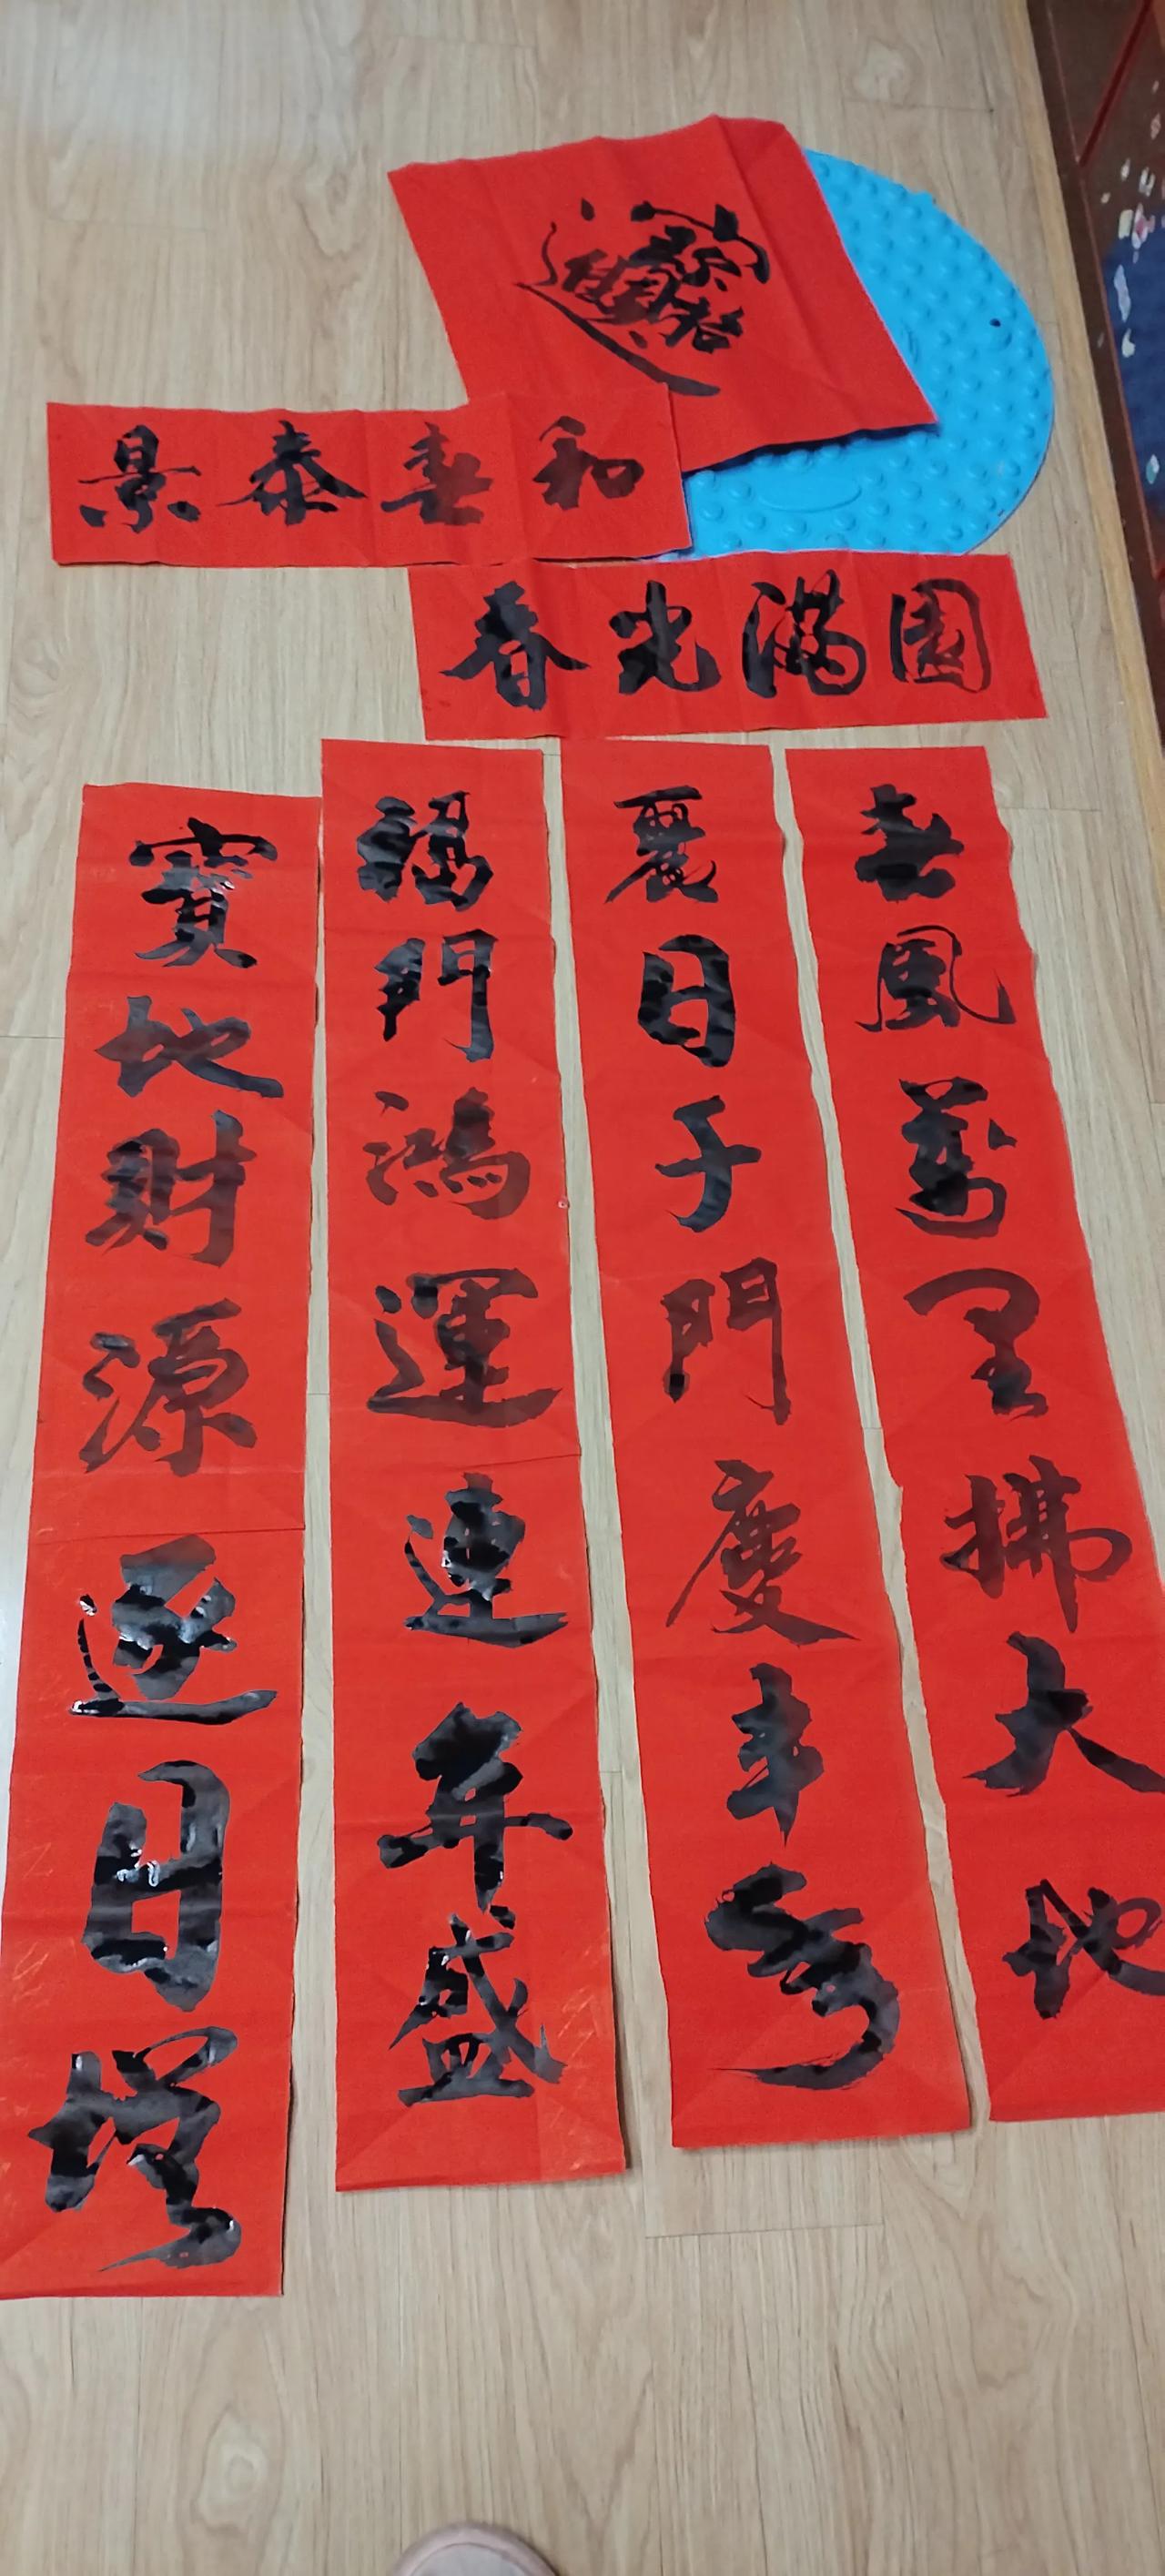 招財進寶
景泰春和
春光满園
春風萬里拂大地
麗日千門慶丰年
福門鴻運連年盛
寶地財源逐日增